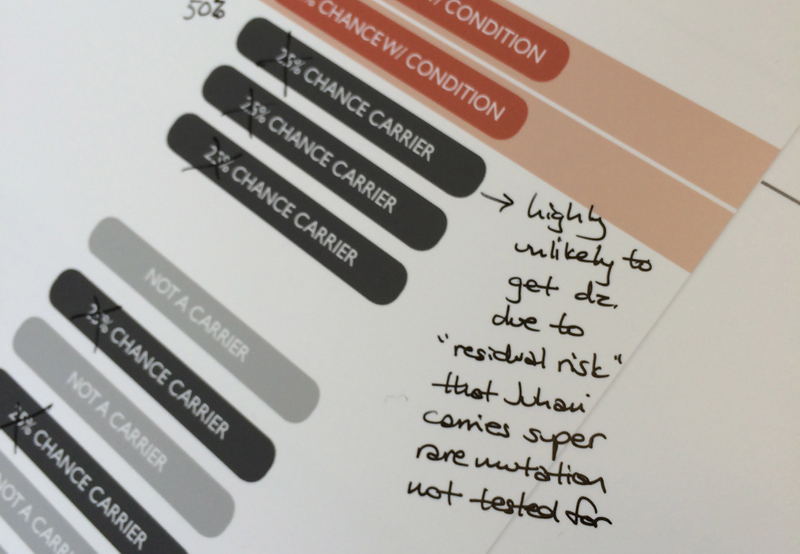 / CONDITION
% CHANCE W/ CONDITION
50%
25% CHANCE CARRIER
25% CHANCE CARRIER
25% CHANCE CARRIER
NOT A CARRIER
25% CHANCE CARRIER
NOT A CARRIER
25% CHANCE CARRIER
NOT A CARRIER
→ highly
unlikely to
get dz.
due to
"residual risk"
that Juhani
carries super
rare mutation
not tested for